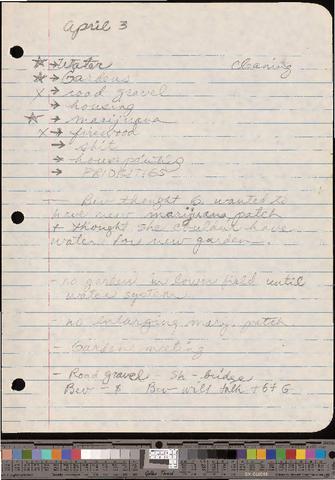 April 3
☆ → Water Cleaning
☆ → Gardens
x → road gravel
→ housing
☆ → marijuana
x → firewood
→ shit
→ housepainting
→ PRIORITIES
— Bev thought G. wanted to
have new marijuana patch
+ thought she could have
water for new garden —.
- no garden in lower field until
water system
- no enlarging marj. patch
- Garden meeting
- Road gravel - Sh - bridge
Bev - $ Bev will talk to G